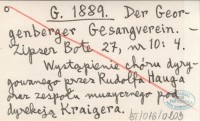 G. 1889. Der Geor-
genberger Gesangverein. -
Zipser Bote 27, nr 10: 4.
Wystąpienie chóru dyry-
gowanego przez Rudolfa Hauga
oraz zespołu muzycznego pod
dyrekcją Kraigera.
BT/016/0209